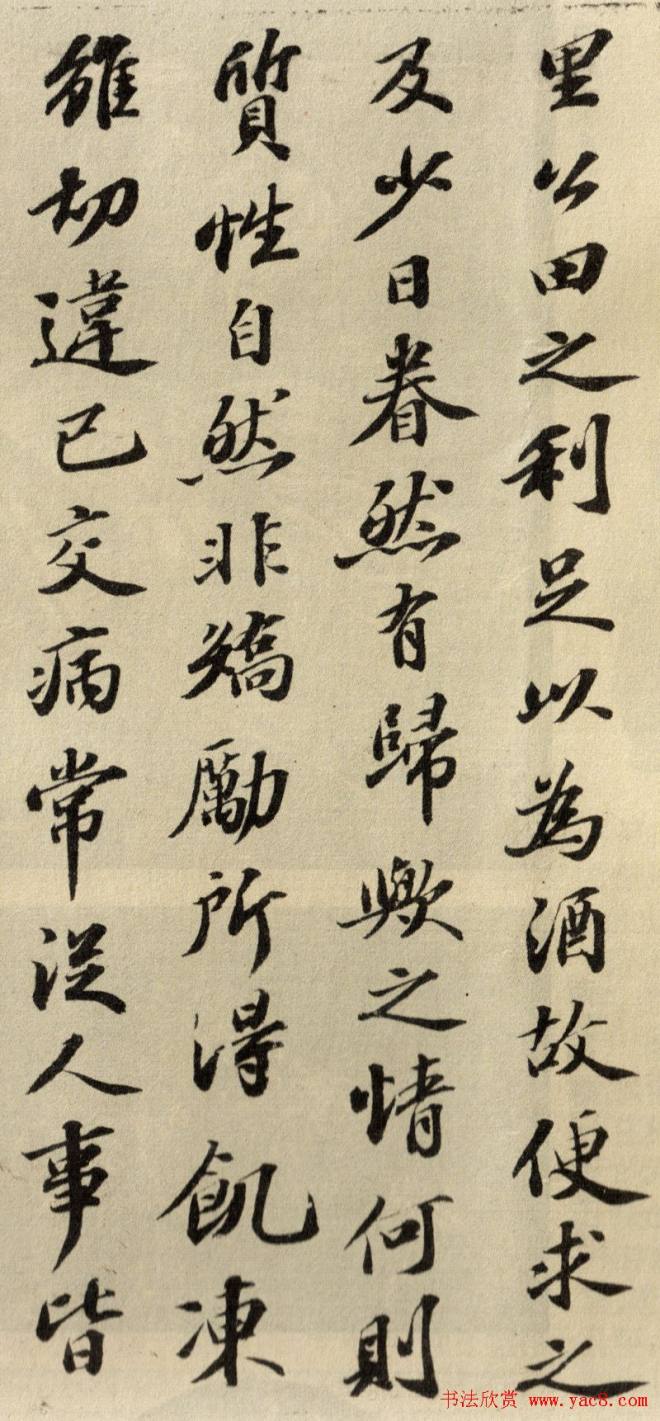 里公田之利足以為酒故便求之
及少日眷然有歸歟之情何則
質性自然非矯勵所得飢凍
雖切違已交病常從人事皆
书法欣赏 www.yac8.com